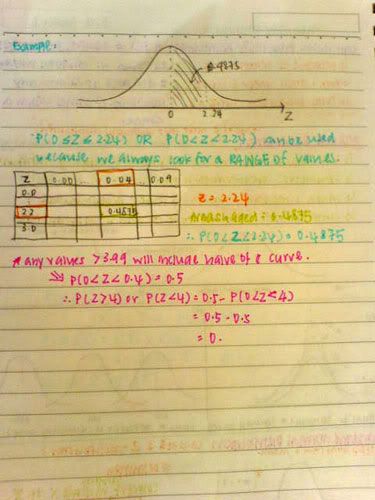 Example:
0.4875
0 2.24 Z
P(0 ≤ Z ≤ 2.24) OR P(0<Z<2.24) can be used
because we always look for a RANGE of values.
Z 0.00 ... 0.04 ... 0.09
0.0
2.2 0.4875
3.0
Z = 2.24
Area shaded = 0.4875
∴ P(0<Z<2.24) = 0.4875
* any values >3.99 will include halve of a curve.
⇒ P(0<Z<0.4) = 0.5
∴ P(Z>4) or P(Z<4) = 0.5 - P(0<Z<4)
= 0.5 - 0.5
= 0.